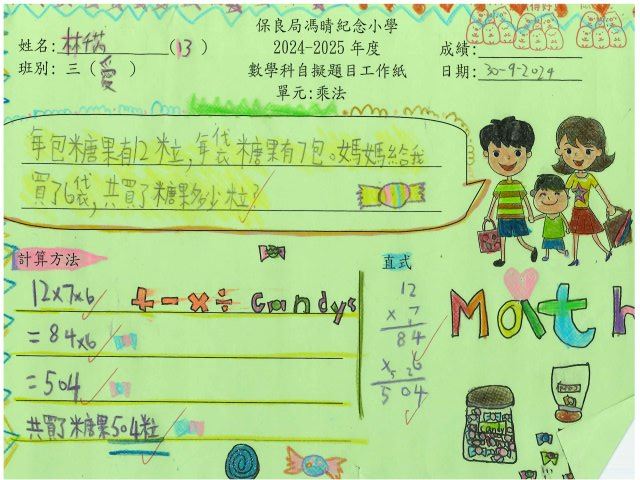 保良局馮晴紀念小學
姓名: 林芮 (13)
2024-2025 年度
成績:
班別: 三 (愛)
數學科自擬題目工作紙
日期: 30-9-2024
單元:乘法
每包糖果有12粒,每袋糖果有7包。媽媽給我
買了6袋,共買了糖果多少粒?
計算方法
直式
12×7×6
+ - × ÷ candys
= 84×6
= 504
共買了糖果504粒
12
× 7
84
× 6
504
Math
candy